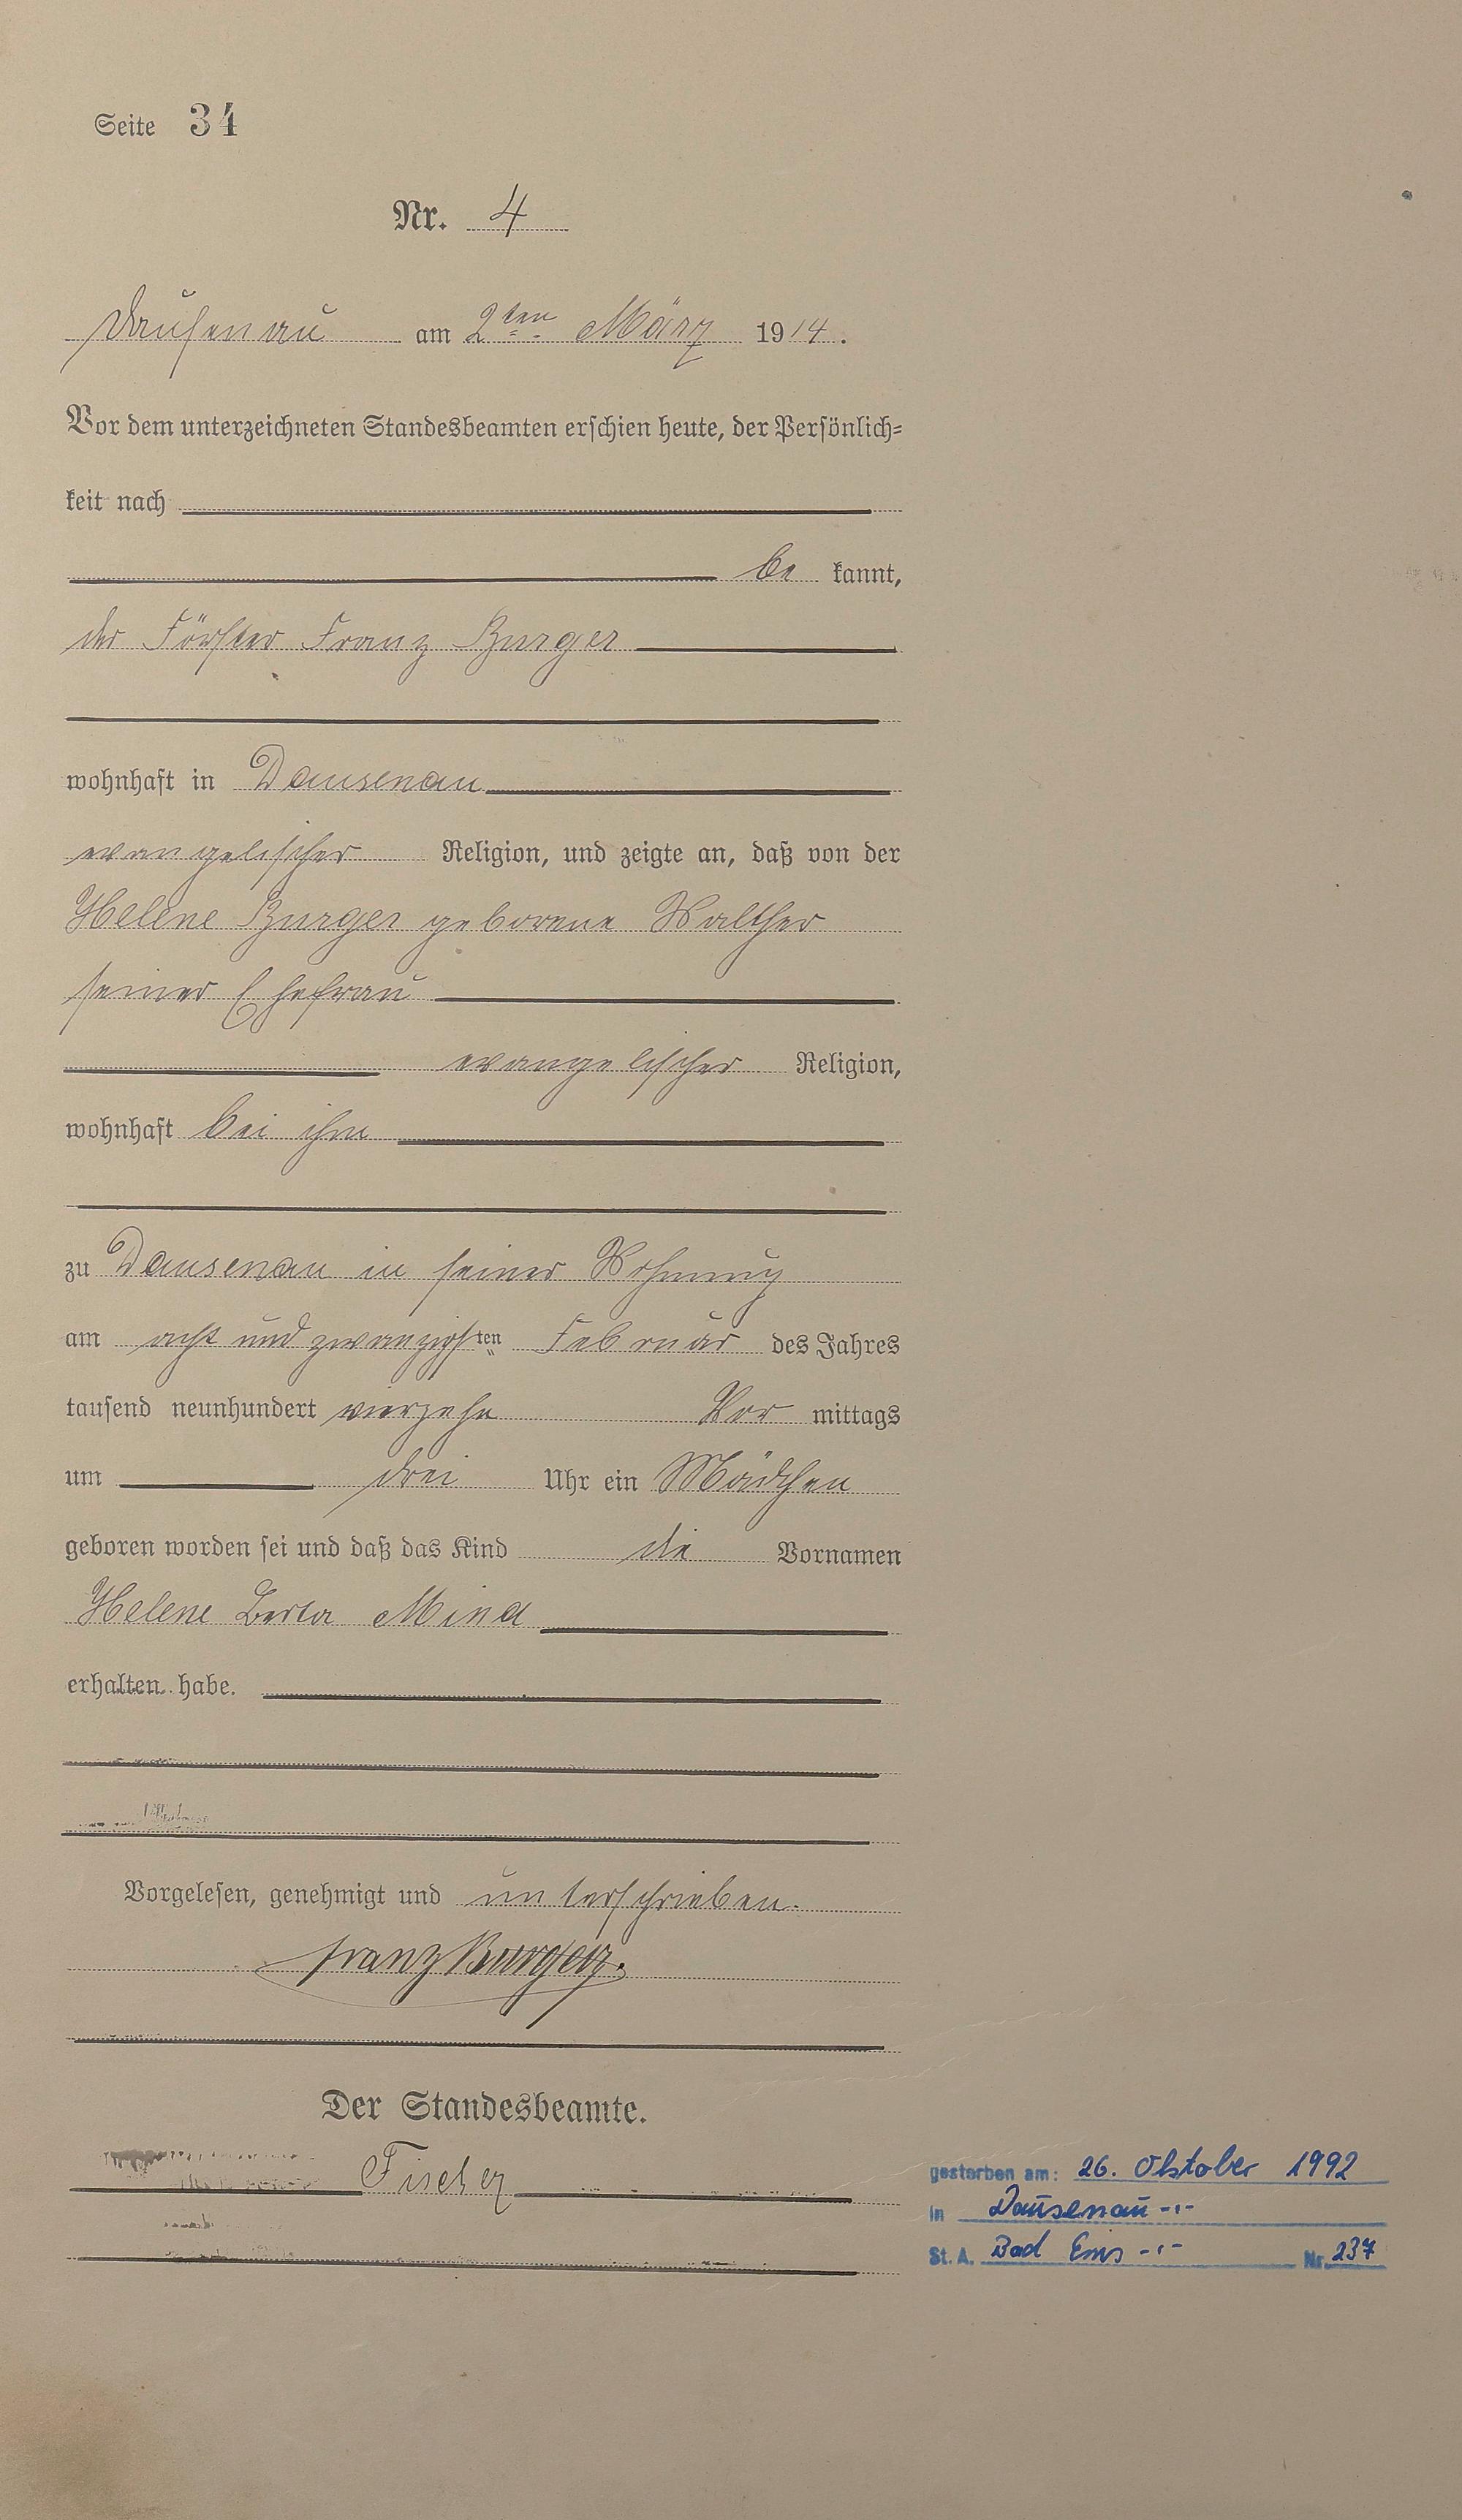 Seite 34
Nr. 4
Dausenau am 2ten März 1914.
Vor dem unterzeichneten Standesbeamten erschien heute, der Persönlich=
keit nach
be kannt,
der Förster Franz Burger
wohnhaft in Dausenau
evangelischer Religion, und zeigte an, daß von der
Helene Burger geborene Walther
seiner Ehefrau
evangelischer Religion,
wohnhaft bei ihm
zu Dausenau in seiner Wohnung
am acht und zwanzigsten Februar des Jahres
tausend neunhundert vierzehn Vor mittags
um drei Uhr ein Mädchen
geboren worden sei und daß das Kind die Vornamen
Helene Berta Mina
erhalten habe.
Vorgelesen, genehmigt und unterschrieben.
Franz Burger.
Der Standesbeamte.
Fischer
gestorben am: 26. Oktober 1992
in Dausenau -.-
St. A. Bad Ems -.- Nr. 237